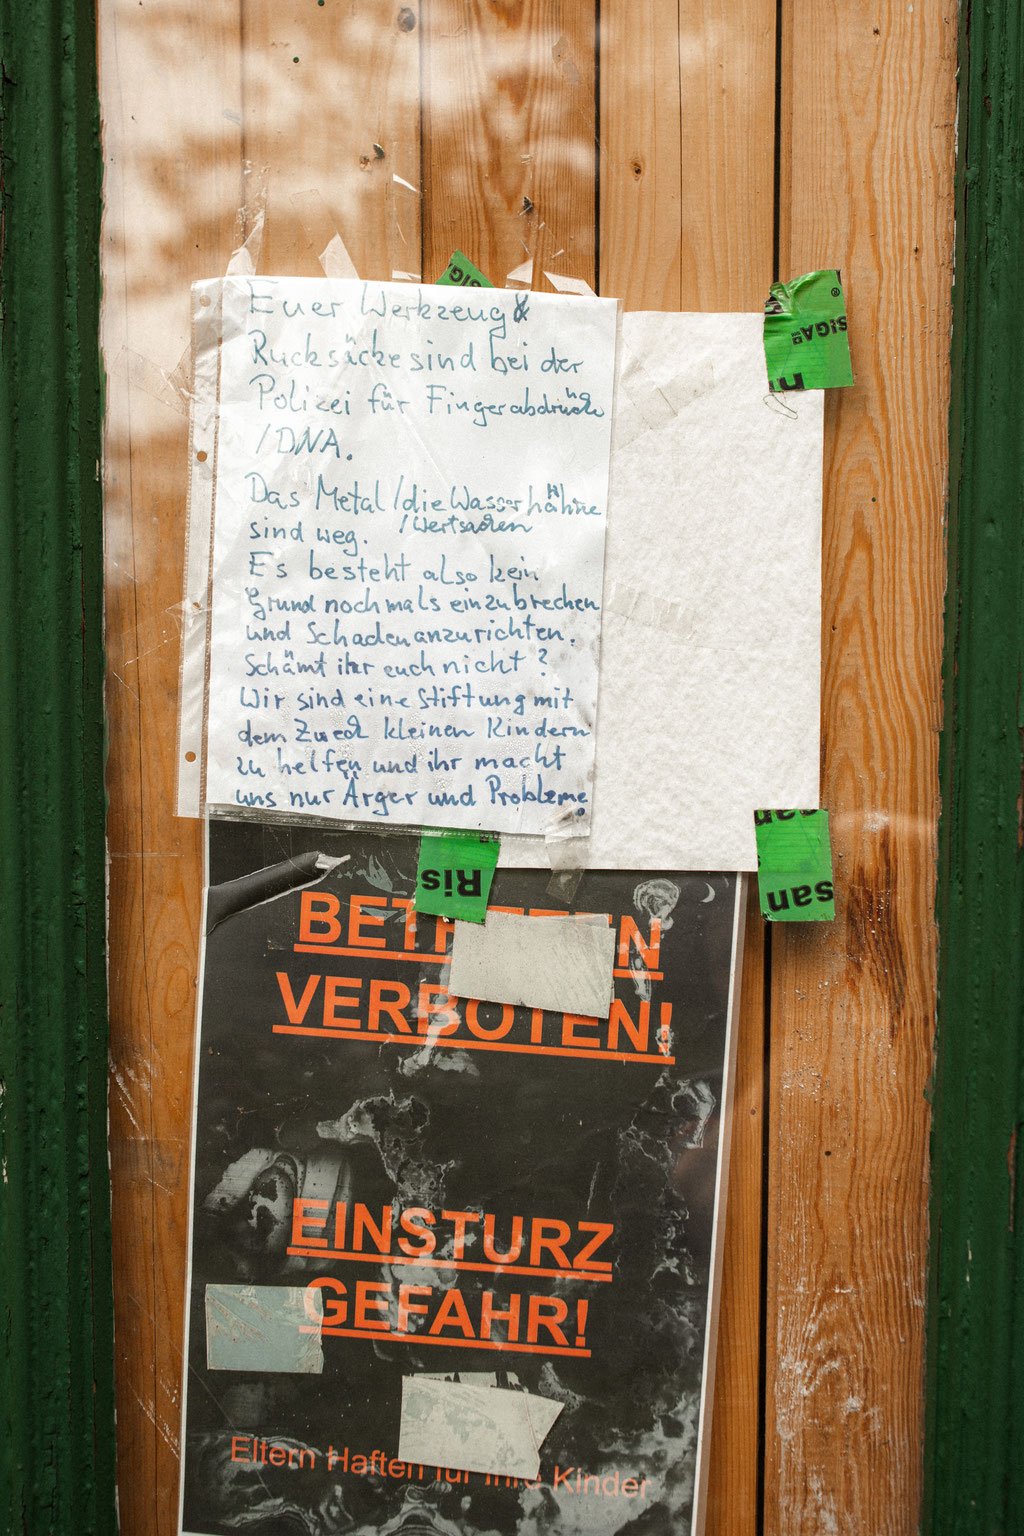 Euer Werkzeug &
Rucksäcke sind bei der
Polizei für Fingerabdrücke
/DNA.
Das Metal/die Wasserhähne
/Wertsachen
sind weg.
Es besteht also kein
Grund nochmals einzubrechen
und Schaden anzurichten.
Schämt ihr euch nicht?
Wir sind eine Stiftung mit
dem Zweck kleinen Kindern
zu helfen und ihr macht
uns nur Ärger und Probleme.
SIGA
SIGA®
san
san
Ris
BETRETEN
VERBOTEN!
EINSTURZ
GEFAHR!
Eltern Haften für Ihre Kinder